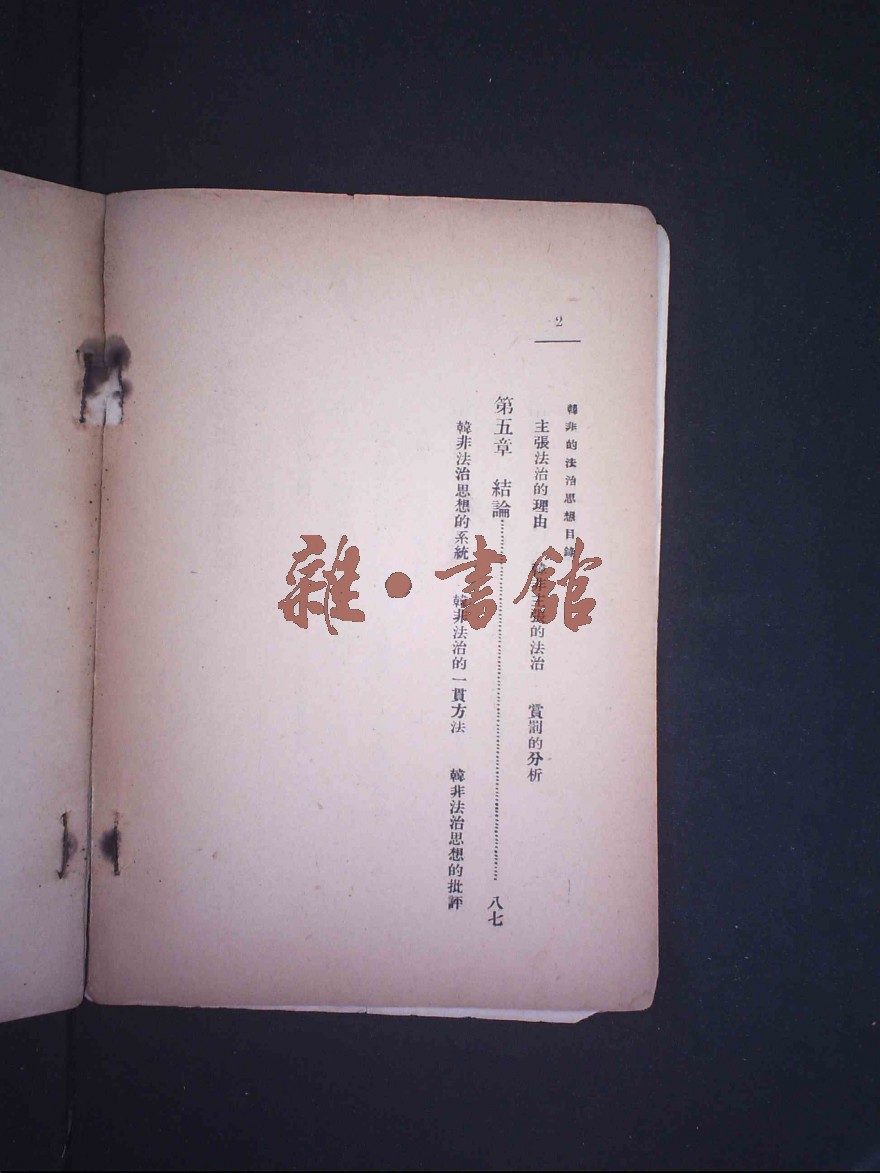 2
韓非的法治思想目錄
主張法治的理由　韓非主張的法治　賞罰的分析
第五章　結論……八七
韓非法治思想的系統　韓非法治的一貫方法　韓非法治思想的批評
雜·書館